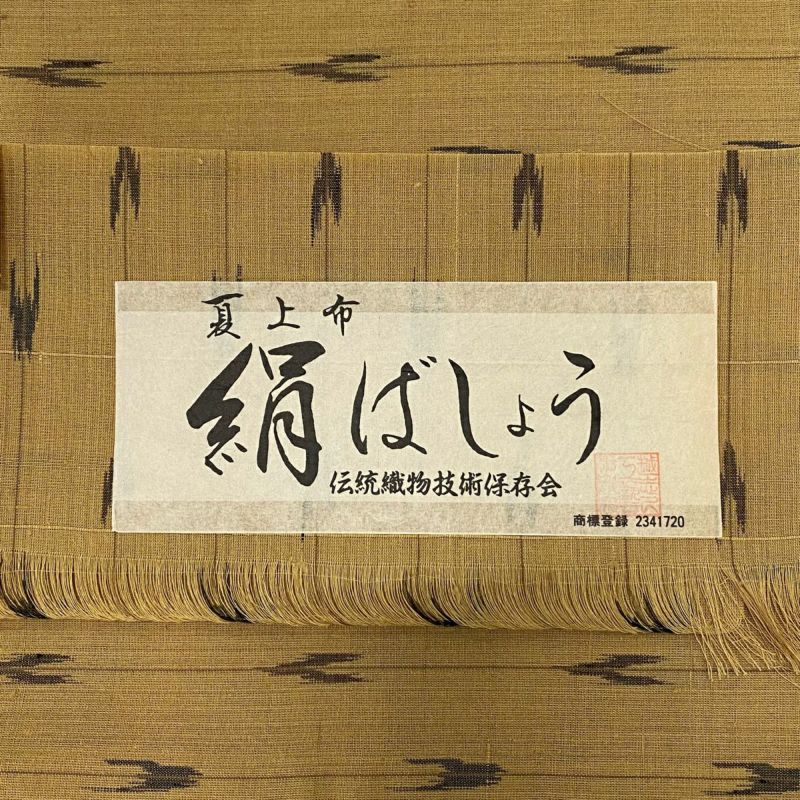 夏上布
絹ばしょう
伝統織物技術保存会
商標登録 2341720